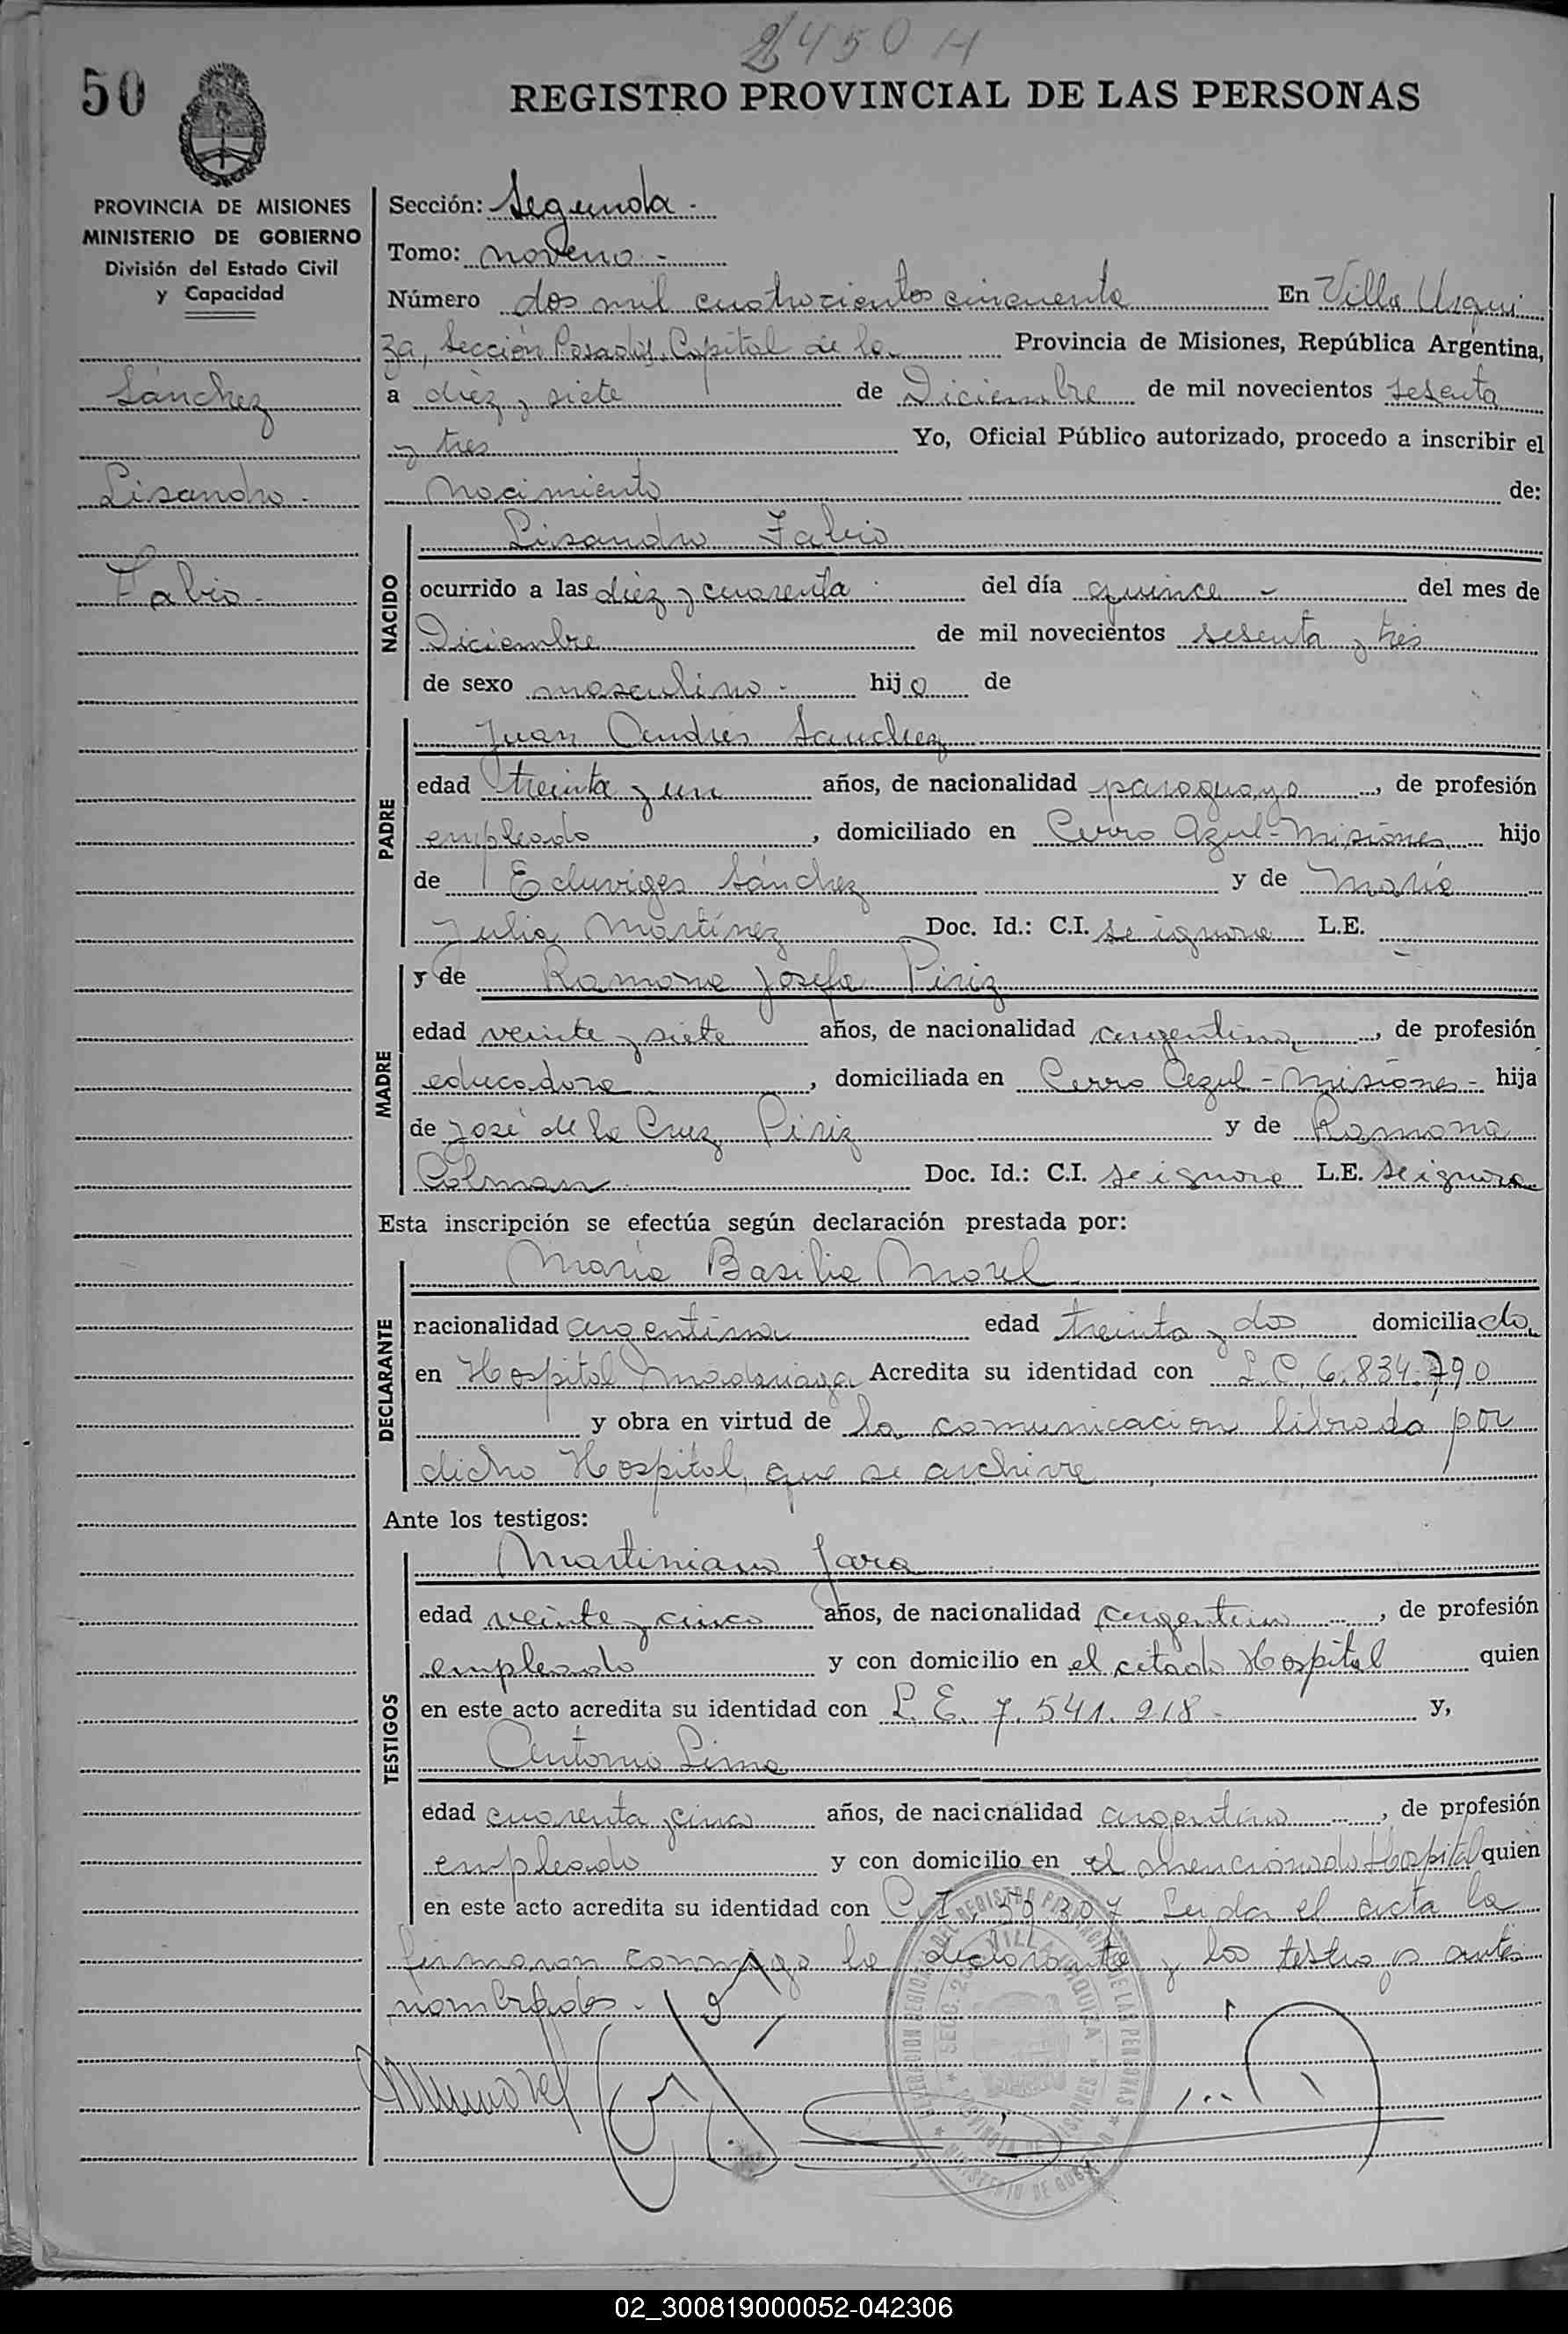 2450 H
50
REGISTRO PROVINCIAL DE LAS PERSONAS
PROVINCIA DE MISIONES
MINISTERIO DE GOBIERNO
División del Estado Civil
y Capacidad
Sánchez
Lisandro.
Fabio.
Sección: Segunda.
Tomo: noveno.-
Número dos mil cuatrocientos cincuenta En Villa Urqui
za, Sección Posadas, Capital de la Provincia de Misiones, República Argentina,
a diez y siete de Diciembre de mil novecientos sesenta
y tres Yo, Oficial Público autorizado, procedo a inscribir el
Nacimiento de:
NACIDO
Lisandro Fabio
ocurrido a las diez y cuarenta del día quince - del mes de
Diciembre de mil novecientos sesenta y tres
de sexo masculino.- hijo de
PADRE
Juan Andrés Sanchez
edad treinta y un años, de nacionalidad paraguayo, de profesión
empleado, domiciliado en Cerro Azul-Misiones hijo
de Eduviges Sánchez y de María
Julia Martínez Doc. Id.: C.I. se ignora L.E.
MADRE
y de Ramona Josefa Piriz
edad veinte y siete años, de nacionalidad argentina, de profesión
educadora, domiciliada en Cerro Azul-Misiones- hija
de José de la Cruz Piriz y de Ramona
Colman Doc. Id.: C.I. se ignora L.E. se ignora
Esta inscripción se efectúa según declaración prestada por:
DECLARANTE
María Basilia Morel
nacionalidad argentina edad treinta y dos domiciliada
en Hospital Madariaga Acredita su identidad con L.C. 6.834.790
y obra en virtud de la comunicacion librada por
dicho Hospital, que se archiva
Ante los testigos:
TESTIGOS
Martiniano Jara
edad veinte y cinco años, de nacionalidad argentino, de profesión
empleado y con domicilio en el citado Hospital quien
en este acto acredita su identidad con L.E. 7.541.218- y,
Antonio Lima
edad cuarenta y cinco años, de nacionalidad argentino, de profesión
empleado y con domicilio en el mencionado Hospital quien
en este acto acredita su identidad con C.I. 39.307. Leida el acta la
firmaron conmigo la declarante y los testigos antes
nombrados.-
MMorel
02_300819000052-042306